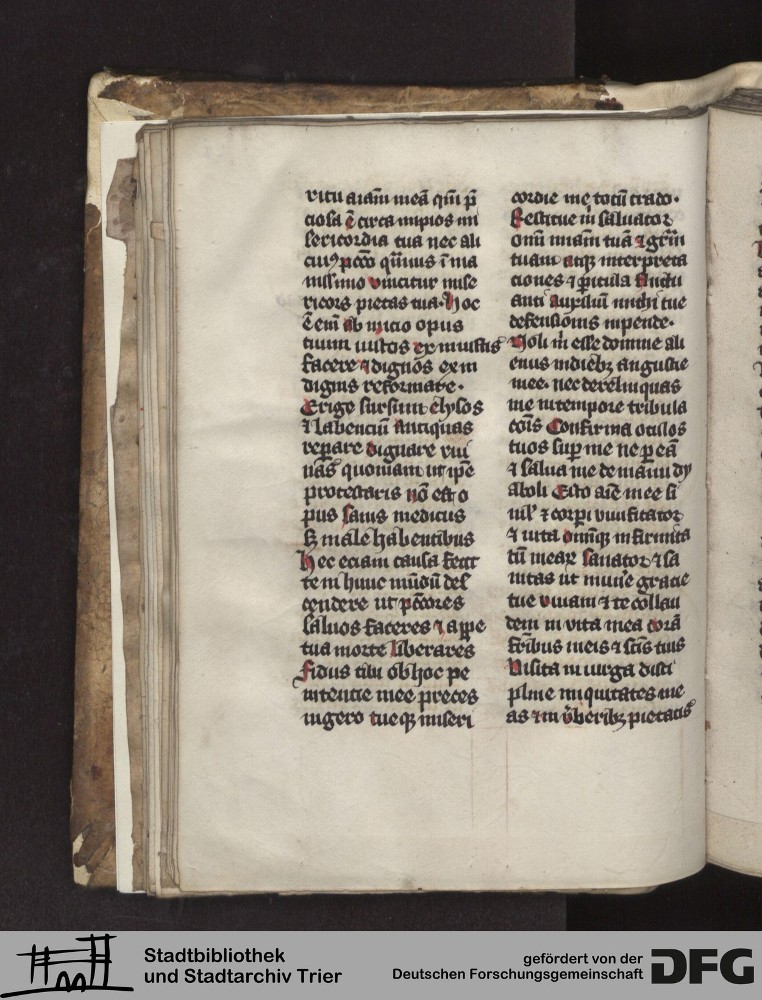 ritu aīam meā qm̄ p̄
ciosa ē circa impios mi
sericordia tua nec ali
cuiꝰ pccō qminus ī ma
nissimo vincitur mise
ricors pietas tua. Hoc
ē em̄ ab inicio opus
tuum iustos ex iniustis
facere ⁊ dignos ex in
dignis reformare.
Erige sursum elysos
⁊ labenciū antiquas
repare dignare rui
nas quoniam ut ip̄e
protestaris nō est o
pus sanis medicus
sꝫ male habentibus
Hec eciam causa fecit
te in hunc mūdū des
cendere ut pc̄cores
saluos faceres ⁊ a ppe
tua morte liberares
fidus tibi ob hoc pe
nitentie mee preces
ingero tueqꝫ miseri
cordie me totū trado.
Restitue m̄ saluator
onū ... tuā ⁊ grām
tuam atqꝫ interpreta
ciones ⁊ picula
auxiliū michi tue
defensionis inpende.
Noli m̄ esse domine ali
enus in diebꝫ angustie
mee. nec derelinquas
me in tempore tribula
cōis Confirma oculos
tuos sup me ne peā
⁊ salua me de manu dy
aboli Esto aīe mee si
mlˀ ⁊ corpi viuificator
⁊ vita omīqꝫ infirmita
tū meaꝝ sanator ⁊ sa
nitas ut mun̄e gracie
tue viuam ⁊ te collau
dem in vita mea corā
fr̄ibus meis ⁊ sc̄is tuis
Visita in virga disci
pline iniquitates me
as ⁊ in v̄beribꝫ pietatis
Stadtbibliothek
und Stadtarchiv Trier
gefördert von der
Deutschen Forschungsgemeinschaft
DFG